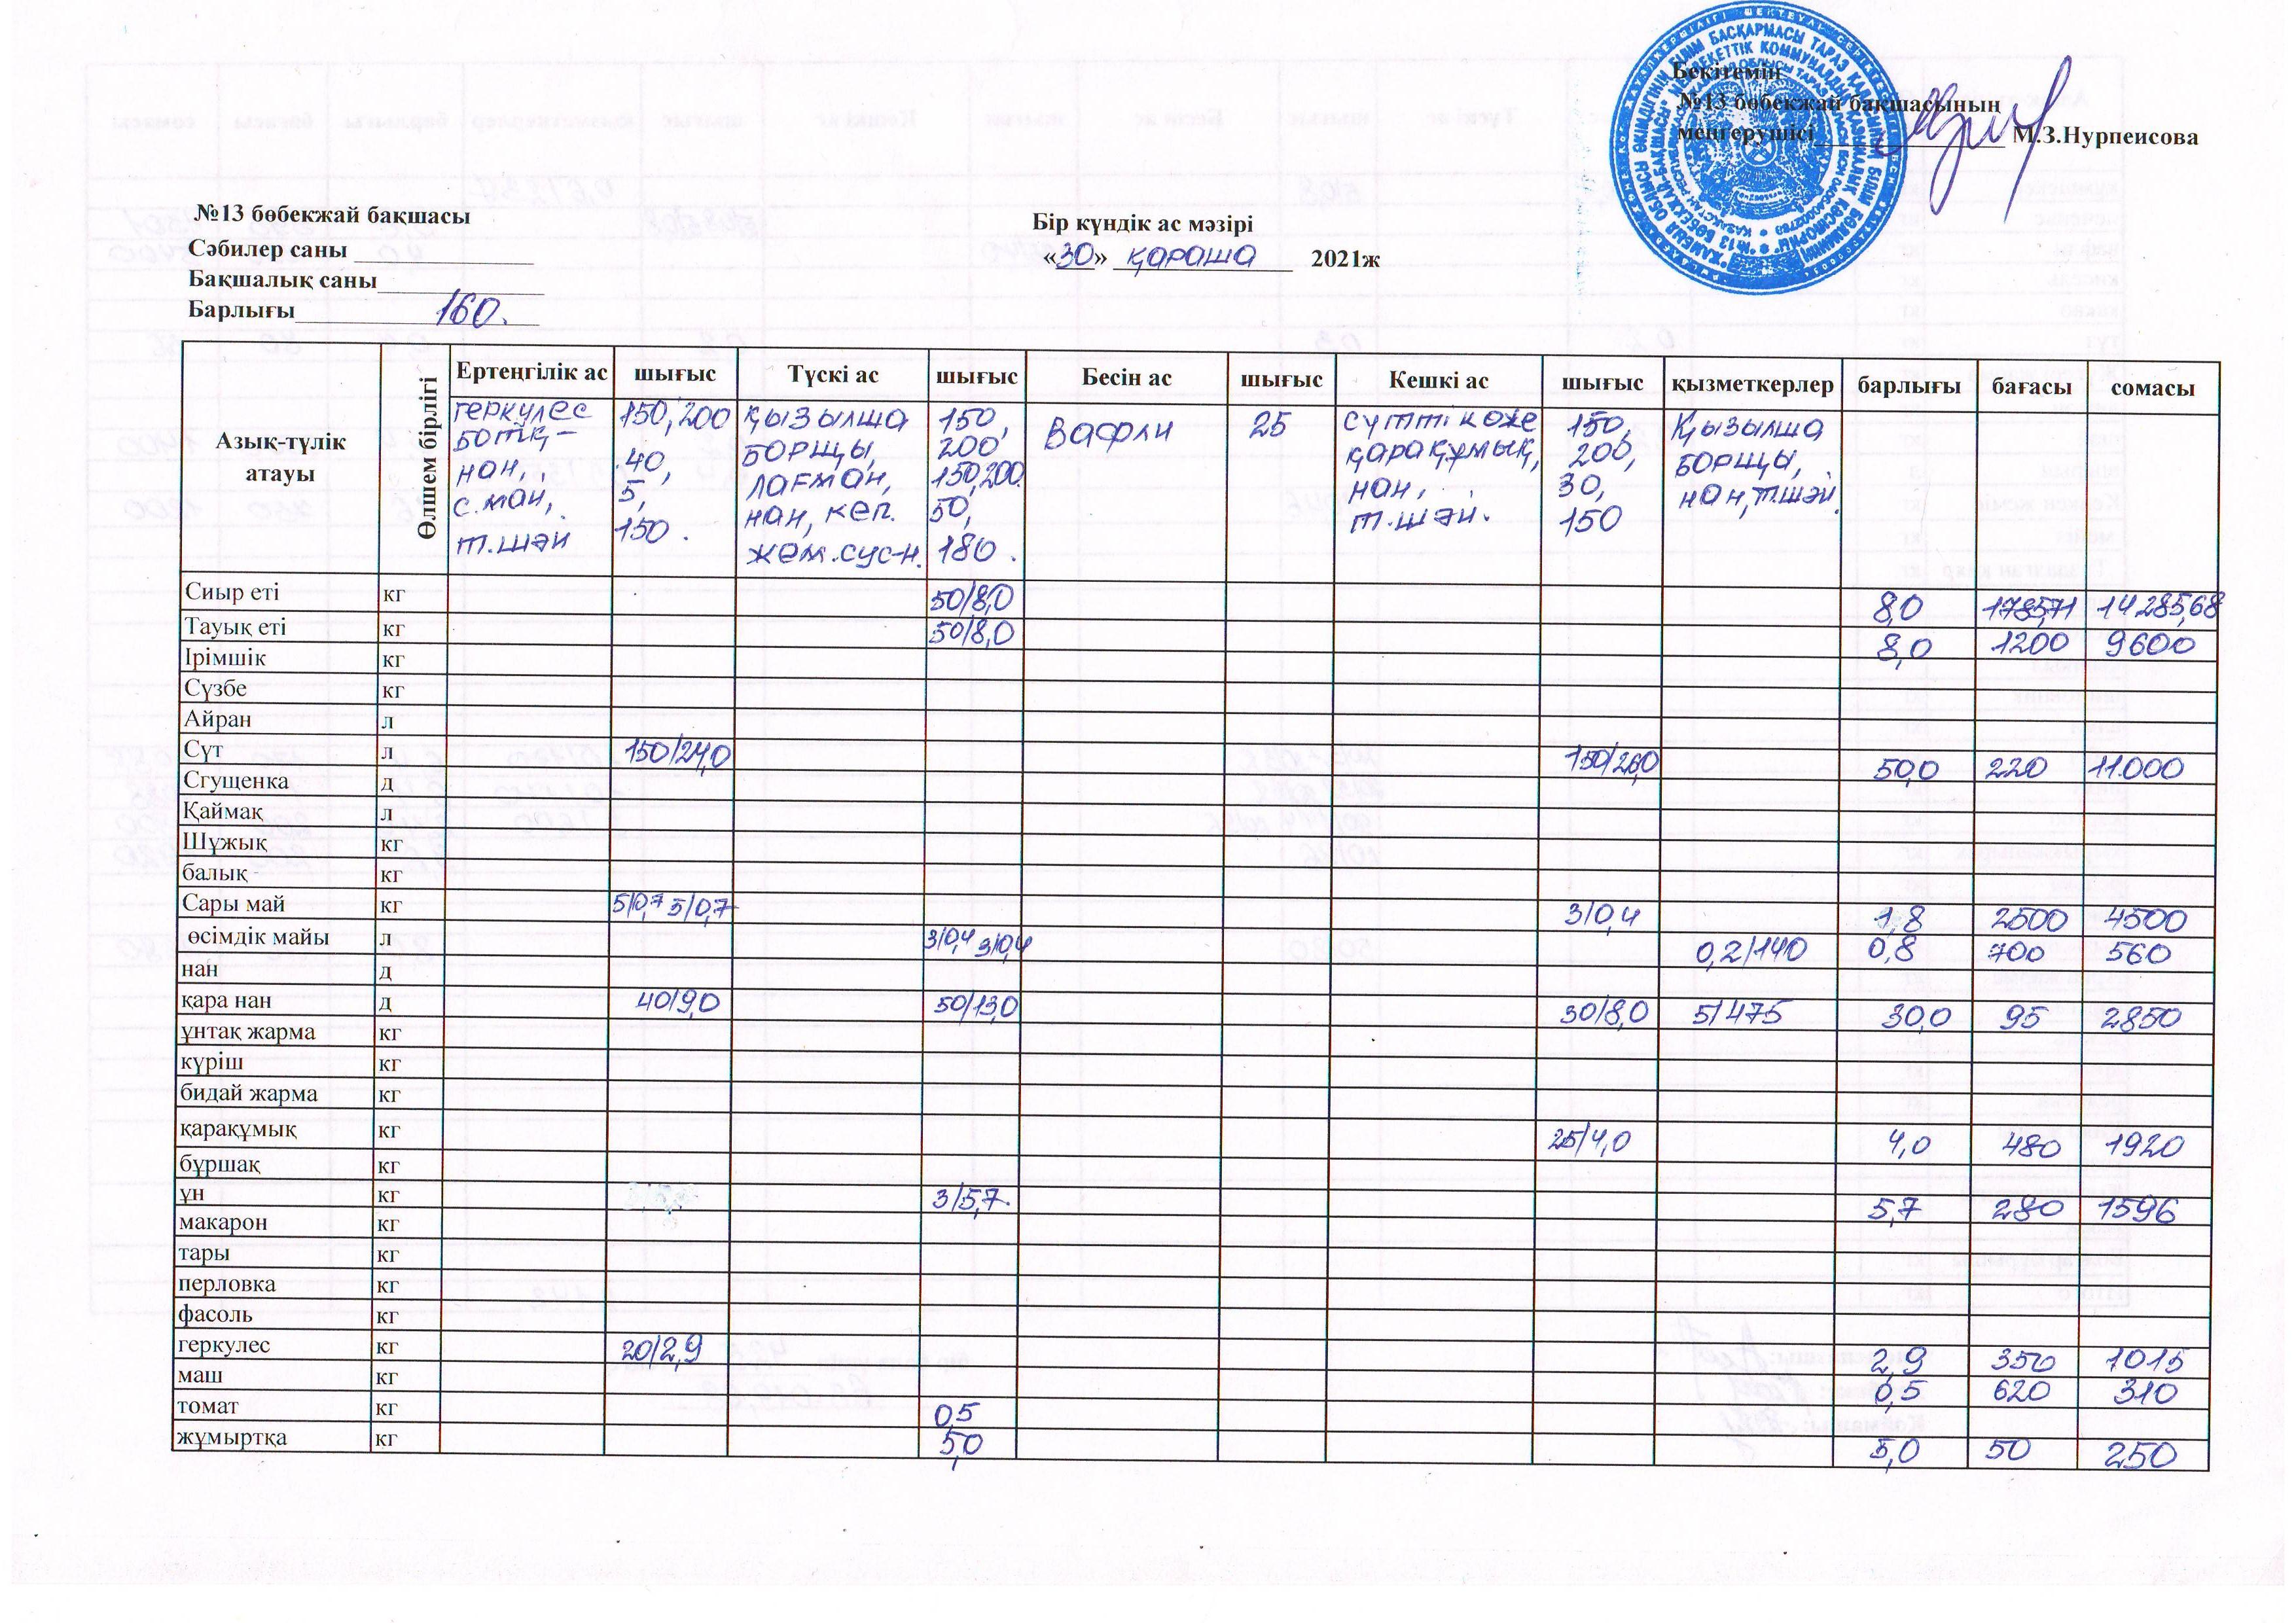 Бекітемін
№13 бөбекжай бақшасының
меңгерушісі______________ М.З.Нурпеисова
№13 бөбекжай бақшасы
Сәбилер саны ______________
Бақшалық саны_____________
Барлығы 160.
Бір күндік ас мәзірі
«30» қараша 2021ж
Азық-түлік атауы Өлшем бірлігі Ертеңгілік ас шығыс Түскі ас шығыс Бесін ас шығыс Кешкі ас шығыс қызметкерлер барлығы бағасы сомасы
геркулес 150,200 қызылша 150, Вафли 25 сүтті көже 150, Қызылша
ботқ- 40, борщы, 200 қарақұмық, 200, борщы,
нан, 5, лағман, 150,200. нан, 30, нан, т.шәй.
с.май, 150. нан, кеп. 50, т.шәй. 150
т.шәй жем.сус-н. 180.
Сиыр еті кг 50/8,0 8,0 1785,71 14285,68
Тауық еті кг 50/8,0 8,0 1200 9600
Ірімшік кг
Сүзбе кг
Айран л
Сүт л 150/24,0 150/26,0 50,0 220 11.000
Сгущенка д
Қаймақ л
Шұжық кг
балық кг
Сары май кг 5/0,7 5/0,7 3/0,4 1,8 2500 4500
өсімдік майы л 3/0,4 3/0,4 0,2/140 0,8 700 560
нан д
қара нан д 40/9,0 50/13,0 30/8,0 5/475 30,0 95 2850
ұнтақ жарма кг
күріш кг
бидай жарма кг
қарақұмық кг 25/4,0 4,0 480 1920
бұршақ кг
ұн кг 3/5,7. 5,7 280 1596
макарон кг
тары кг
перловка кг
фасоль кг
геркулес кг 20/2,9 2,9 350 1015
маш кг 0,5 620 310
томат кг 0,5
жұмыртқа кг 5,0 5,0 50 250